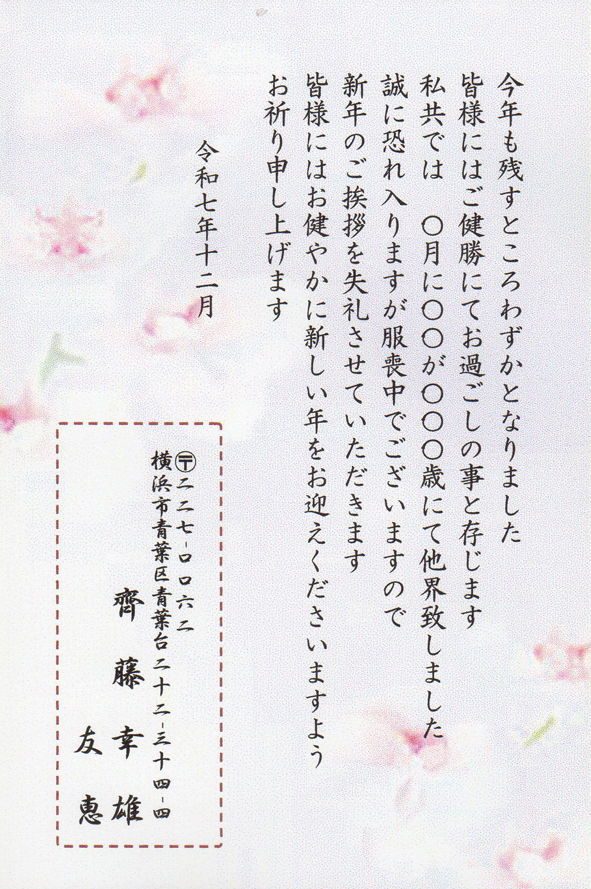 今年も残すところわずかとなりました
皆様にはご健勝にてお過ごしの事と存じます
私共では　〇月に〇〇が〇〇〇歳にて他界致しました
誠に恐れ入りますが服喪中でございますので
新年のご挨拶を失礼させていただきます
皆様にはお健やかに新しい年をお迎えくださいますよう
お祈り申し上げます
令和七年十二月
〶二二七-〇〇六二
横浜市青葉区青葉台二十二-三十四-四
齊藤幸雄
友恵